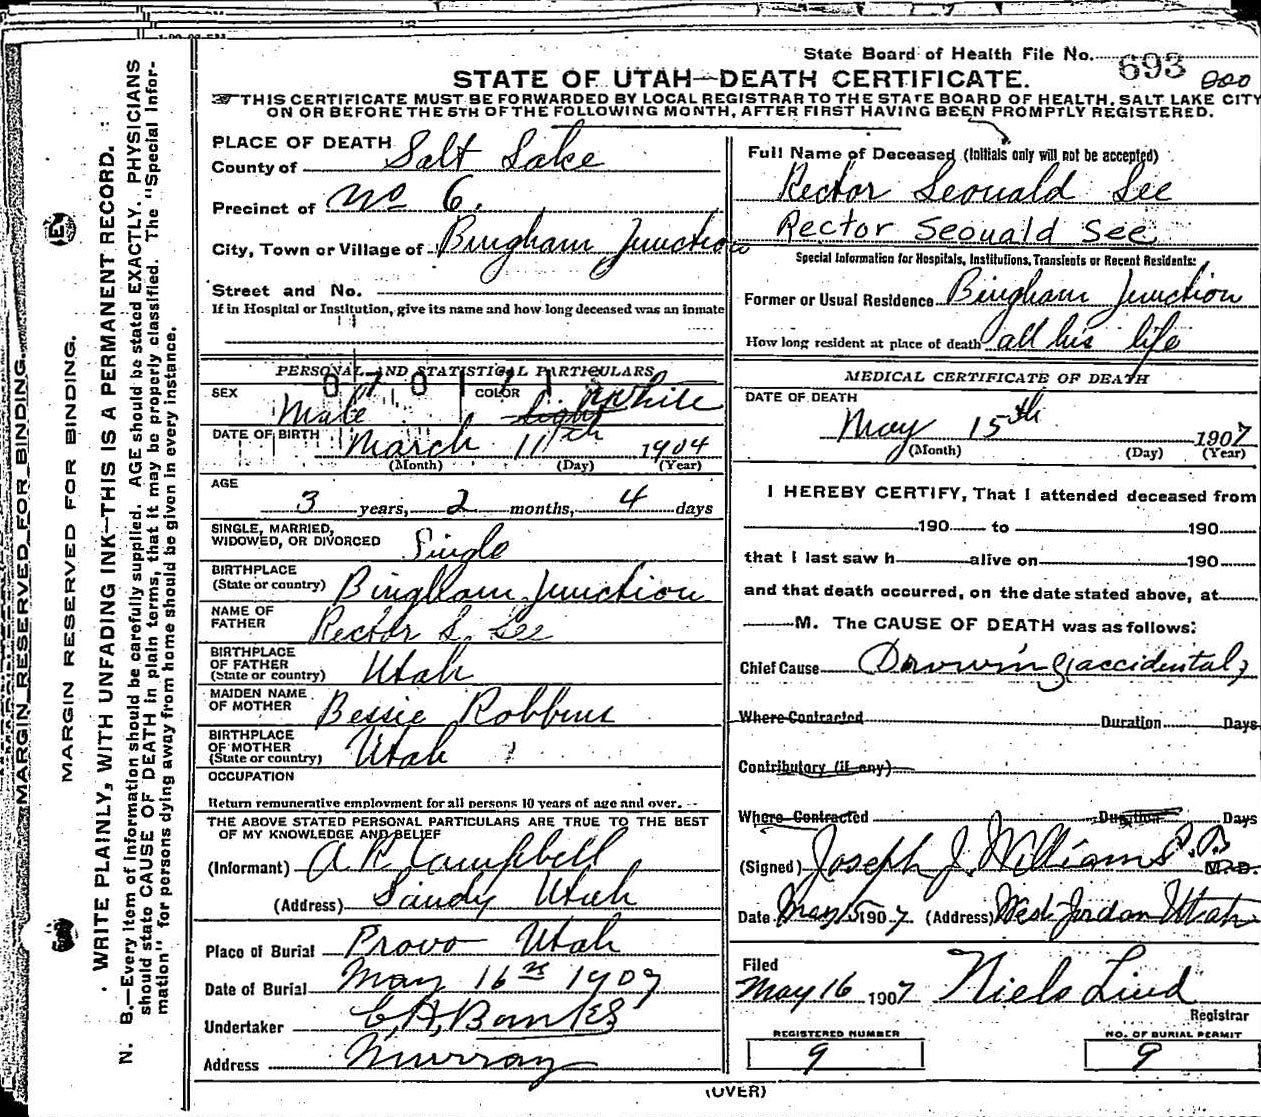 State Board of Health File No. 693
STATE OF UTAH—DEATH CERTIFICATE.
THIS CERTIFICATE MUST BE FORWARDED BY LOCAL REGISTRAR TO THE STATE BOARD OF HEALTH, SALT LAKE CITY
ON OR BEFORE THE 5TH OF THE FOLLOWING MONTH, AFTER FIRST HAVING BEEN PROMPTLY REGISTERED.
MARGIN RESERVED FOR BINDING.
MARGIN RESERVED FOR BINDING.
WRITE PLAINLY, WITH UNFADING INK—THIS IS A PERMANENT RECORD.
N. B.—Every item of information should be carefully supplied. AGE should be stated EXACTLY. PHYSICIANS
should state CAUSE OF DEATH in plain terms, that it may be properly classified. The "Special Infor-
mation" for persons dying away from home should be given in every instance.
PLACE OF DEATH
County of Salt Lake
Precinct of No 6.
City, Town or Village of Bingham Junction
Street and No.
If in Hospital or Institution, give its name and how long deceased was an inmate
PERSONAL AND STATISTICAL PARTICULARS
SEX Male COLOR light White
DATE OF BIRTH March 11th 1904
(Month) (Day) (Year)
AGE
3 years, 2 months, 4 days
SINGLE, MARRIED,
WIDOWED, OR DIVORCED Single
BIRTHPLACE
(State or country) Bingham Junction
NAME OF
FATHER Rector S. See
BIRTHPLACE
OF FATHER
(State or country) Utah
MAIDEN NAME
OF MOTHER Bessie Robbins
BIRTHPLACE
OF MOTHER
(State or country) Utah
OCCUPATION
Return remunerative employment for all persons 10 years of age and over.
THE ABOVE STATED PERSONAL PARTICULARS ARE TRUE TO THE BEST
OF MY KNOWLEDGE AND BELIEF
(Informant) A R Campbell
(Address) Sandy Utah
Place of Burial Provo Utah
Date of Burial May 16th 1907
Undertaker C, H, Banks
Address Murray
Full Name of Deceased (Initials only will not be accepted)
Rector Seouald See
Rector Seouald See
Special Information for Hospitals, Institutions, Transients or Recent Residents:
Former or Usual Residence Bingham Junction
How long resident at place of death all his life
MEDICAL CERTIFICATE OF DEATH
DATE OF DEATH
May 15th 1907
(Month) (Day) (Year)
I HEREBY CERTIFY, That I attended deceased from
190 to 190
that I last saw h alive on 190
and that death occurred, on the date stated above, at
M. The CAUSE OF DEATH was as follows:
Chief Cause Drowning (accidental)
Where Contracted Duration Days
Contributory (if any)
Where Contracted Duration Days
(Signed) Joseph J. Williams M.D.
Date May 15 1907 (Address) West Jordan Utah
Filed
May 16 1907 Niels Lind
Registrar
REGISTERED NUMBER
9
NO. OF BURIAL PERMIT
9
(OVER)